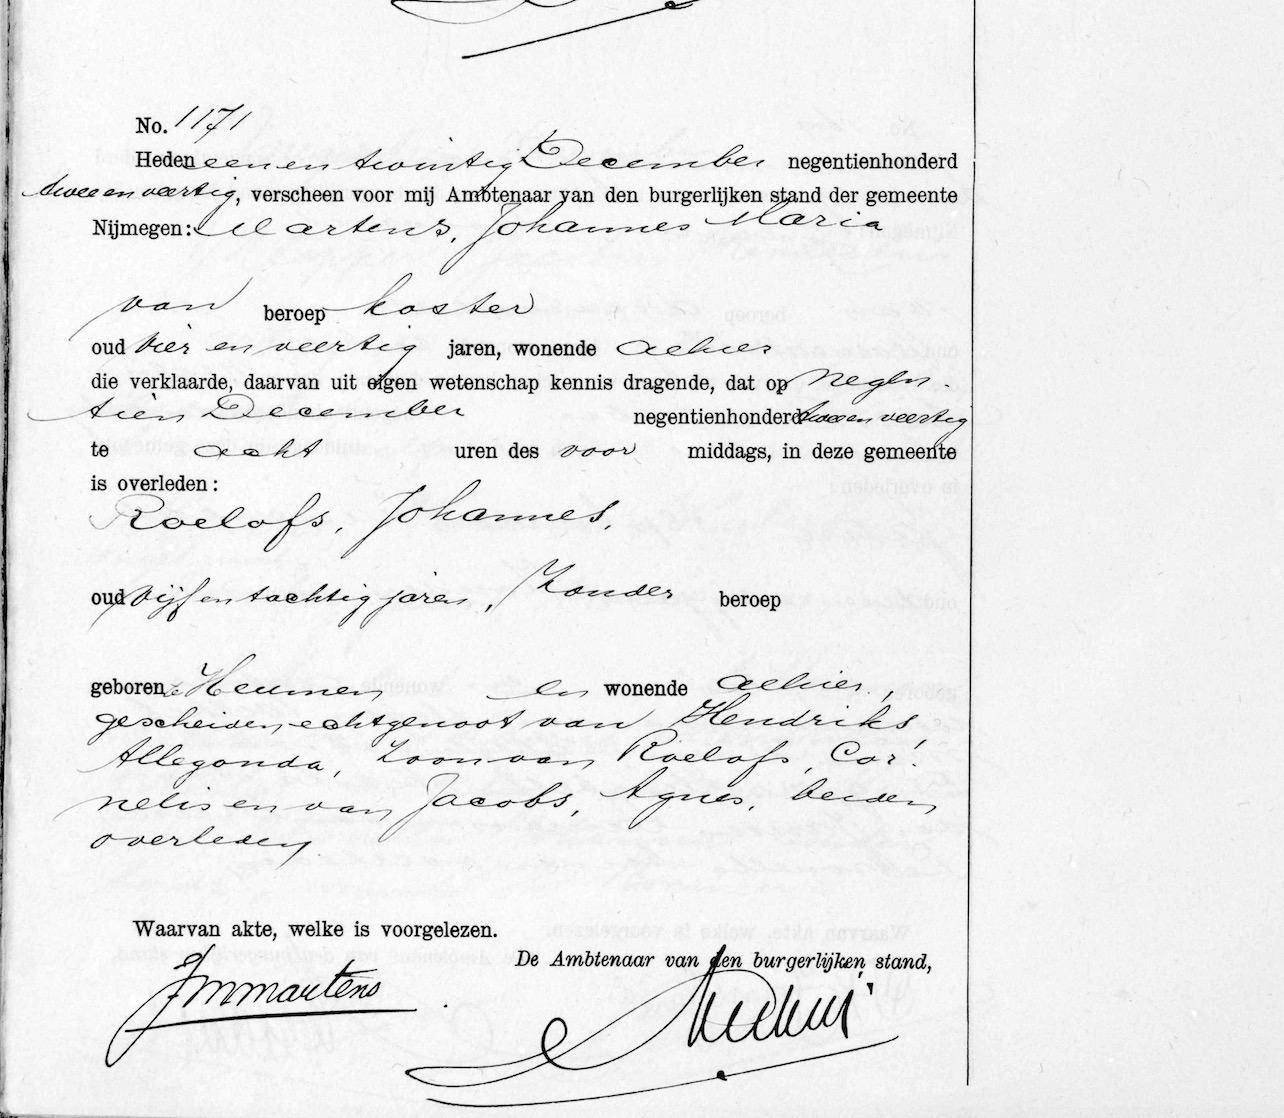 No. 1171
Heden een en twintig December negentienhonderd
twee en veertig, verscheen voor mij Ambtenaar van den burgerlijken stand der gemeente
Nijmegen: Martens, Johannes Maria
van beroep koster
oud vier en veertig jaren, wonende alhier
die verklaarde, daarvan uit eigen wetenschap kennis dragende, dat op negen-
tien December negentienhonderd twee en veertig
te acht uren des voor middags, in deze gemeente
is overleden:
Roelofs, Johannes,
oud vijf en tachtig jaren, zonder beroep
geboren te Heumen en wonende alhier,
gescheiden echtgenoot van Hendriks,
Allegonda, zoon van Roelofs, Cor-
nelis en van Jacobs, Agnes, beiden
overleden
Waarvan akte, welke is voorgelezen.
De Ambtenaar van den burgerlijken stand,
JMMartens